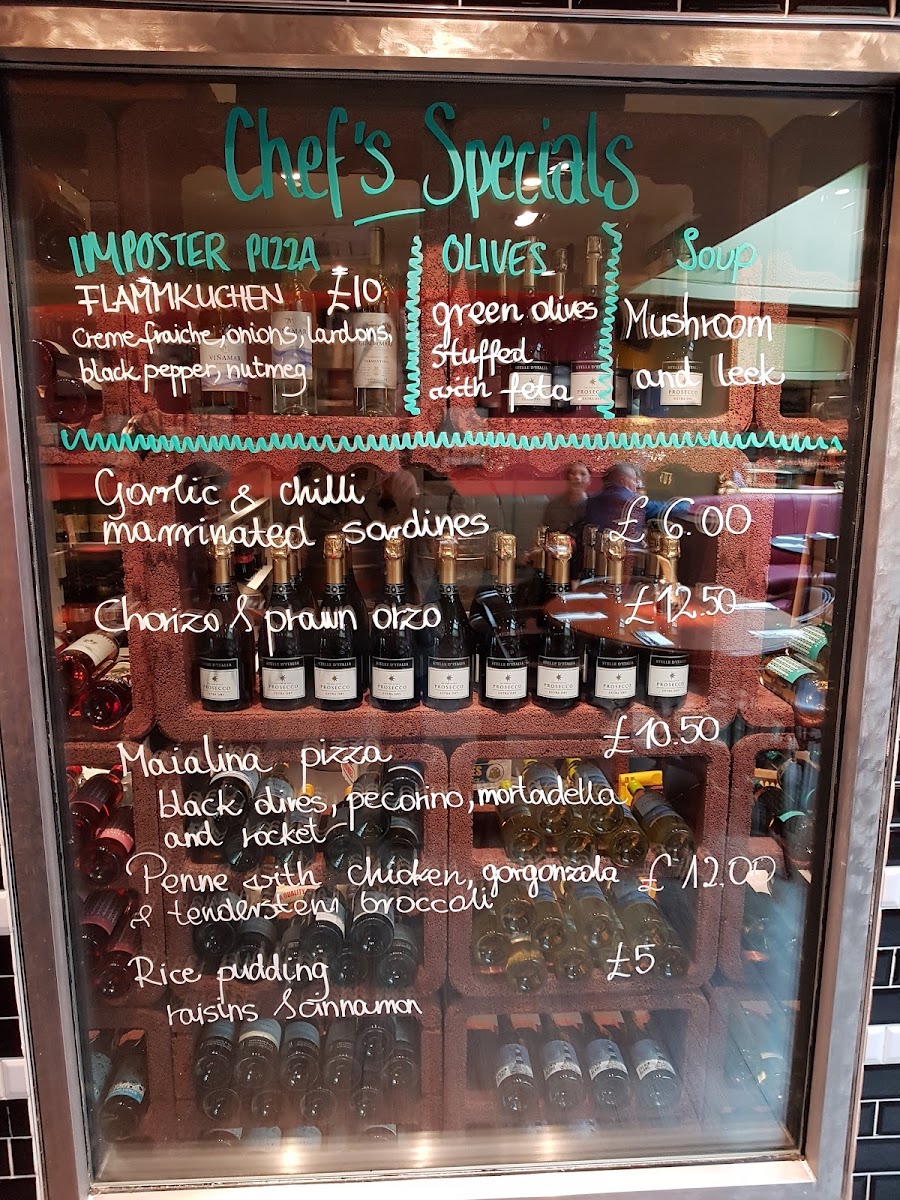 Chef's Specials
IMPOSTER PIZZA
FLAMMKUCHEN £10
Creme fraiche, onions, lardons,
black pepper, nutmeg
OLIVES
green olives
stuffed
with feta
Soup
Mushroom
and leek
Garrlic & chilli
marrinated sardines £6.00
Chorizo & prawn orzo £12.50
Maialina pizza £10.50
black olives, pecorino, mortadella
and rocket
Penne with chicken, gorgonzola £12.00
& tenderstem broccoli
Rice pudding £5
raisins & cinnamon
VIÑAMAR
STELLE D'ITALIA
PROSECCO
EXTRA DRY
QUALITY